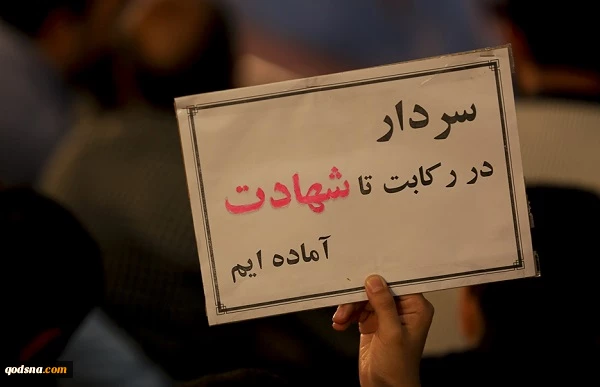 سردار
در رکابت تا شهادت
آماده ایم
qodsna.com